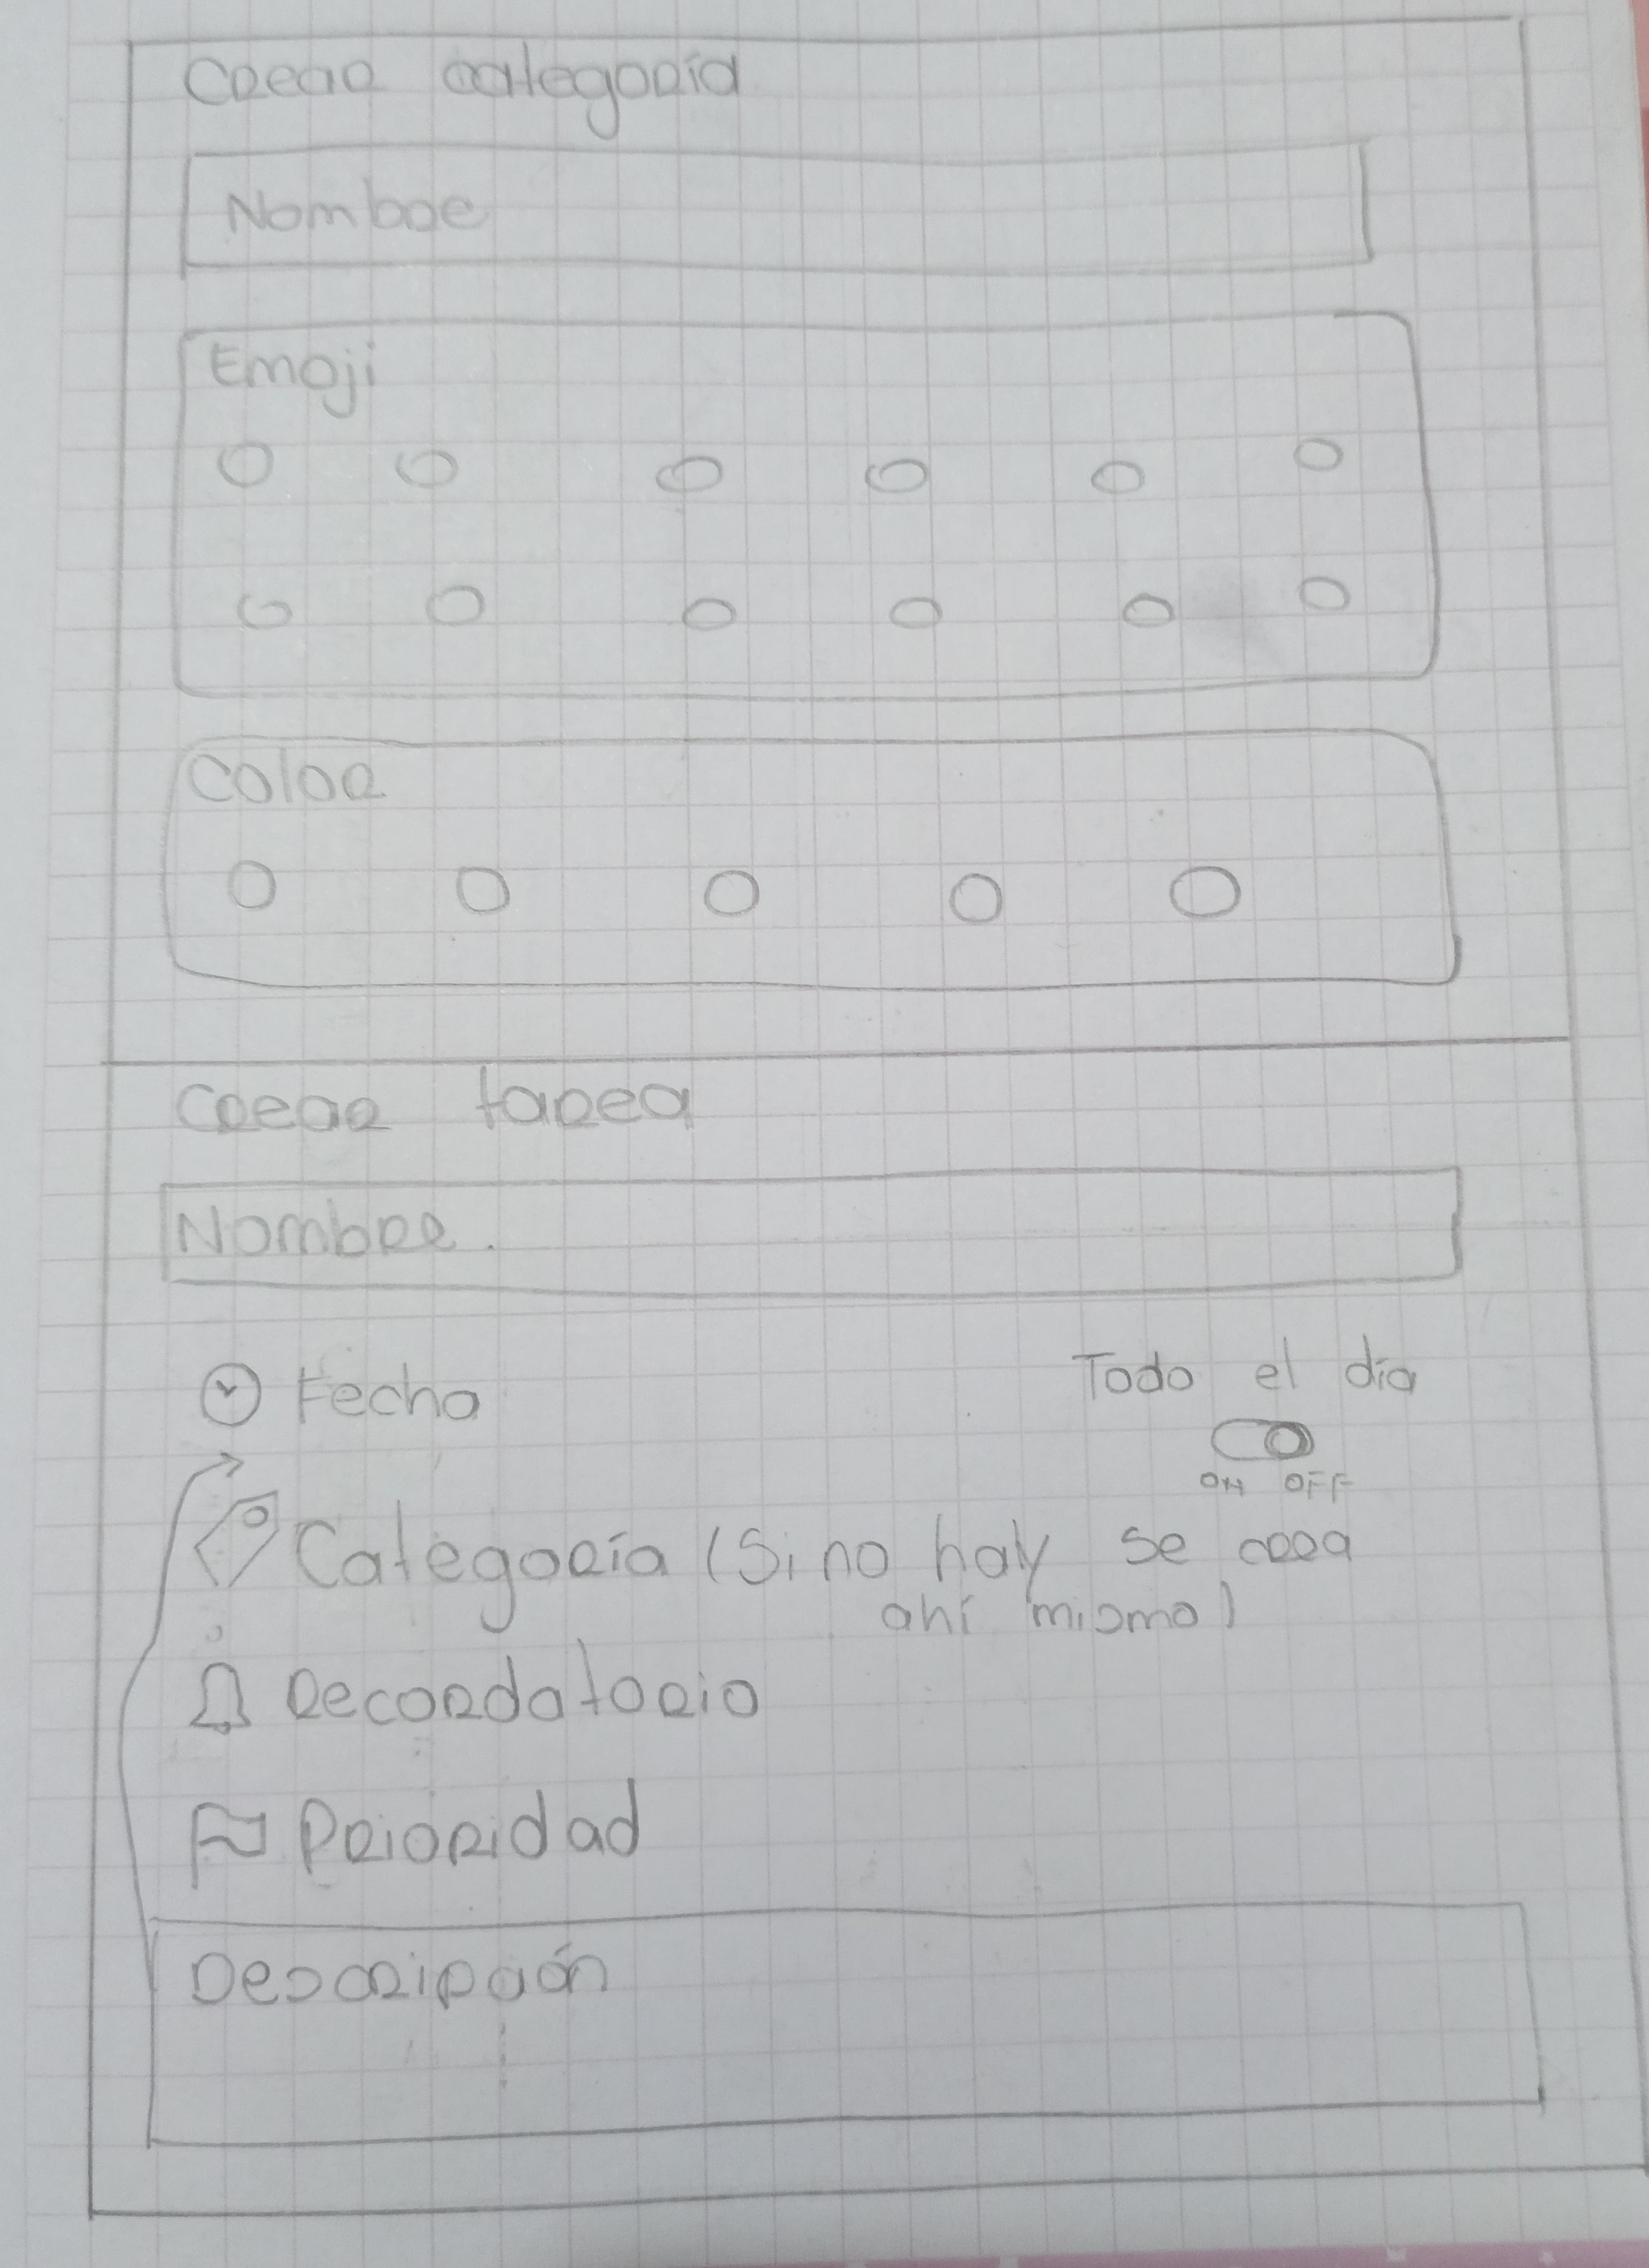 Crear categoría
Nombre
Emoji
Color
Crear tarea
Nombre.
Fecha
Todo el día
ON OFF
Categoría (Si no hay se crea
ahí mismo)
Recordatorio
Prioridad
Descripción